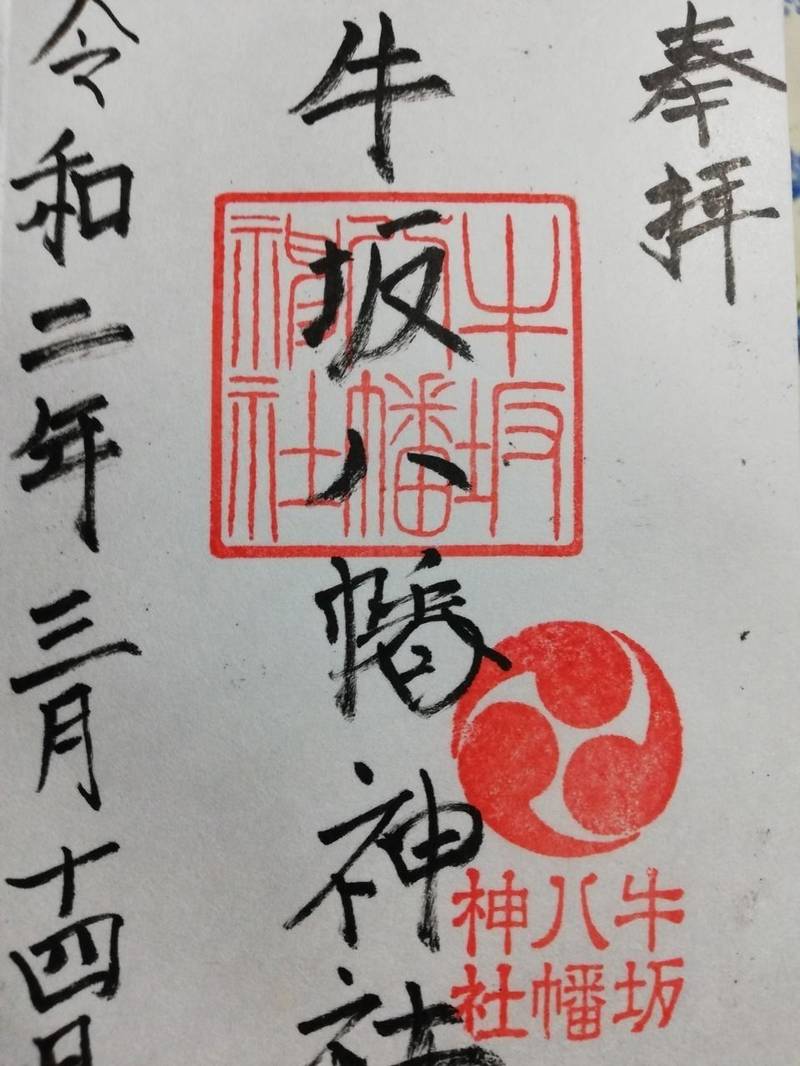 奉拝
牛坂八幡神社
令和二年三月十四日
牛坂
八幡
神社
牛坂
八幡
神社